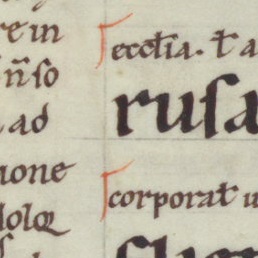 re in
n̄ so
ad
ione
lolꝙ
eccl̄ia. t̄ a
rusa
corporat̄ u